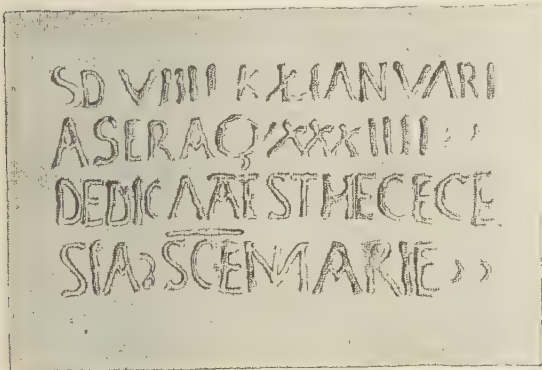 SD VIIII KLIANVARI
ASERAQ XXXIIII
DEDICATAESTHECECE
SIA SCEMARIE